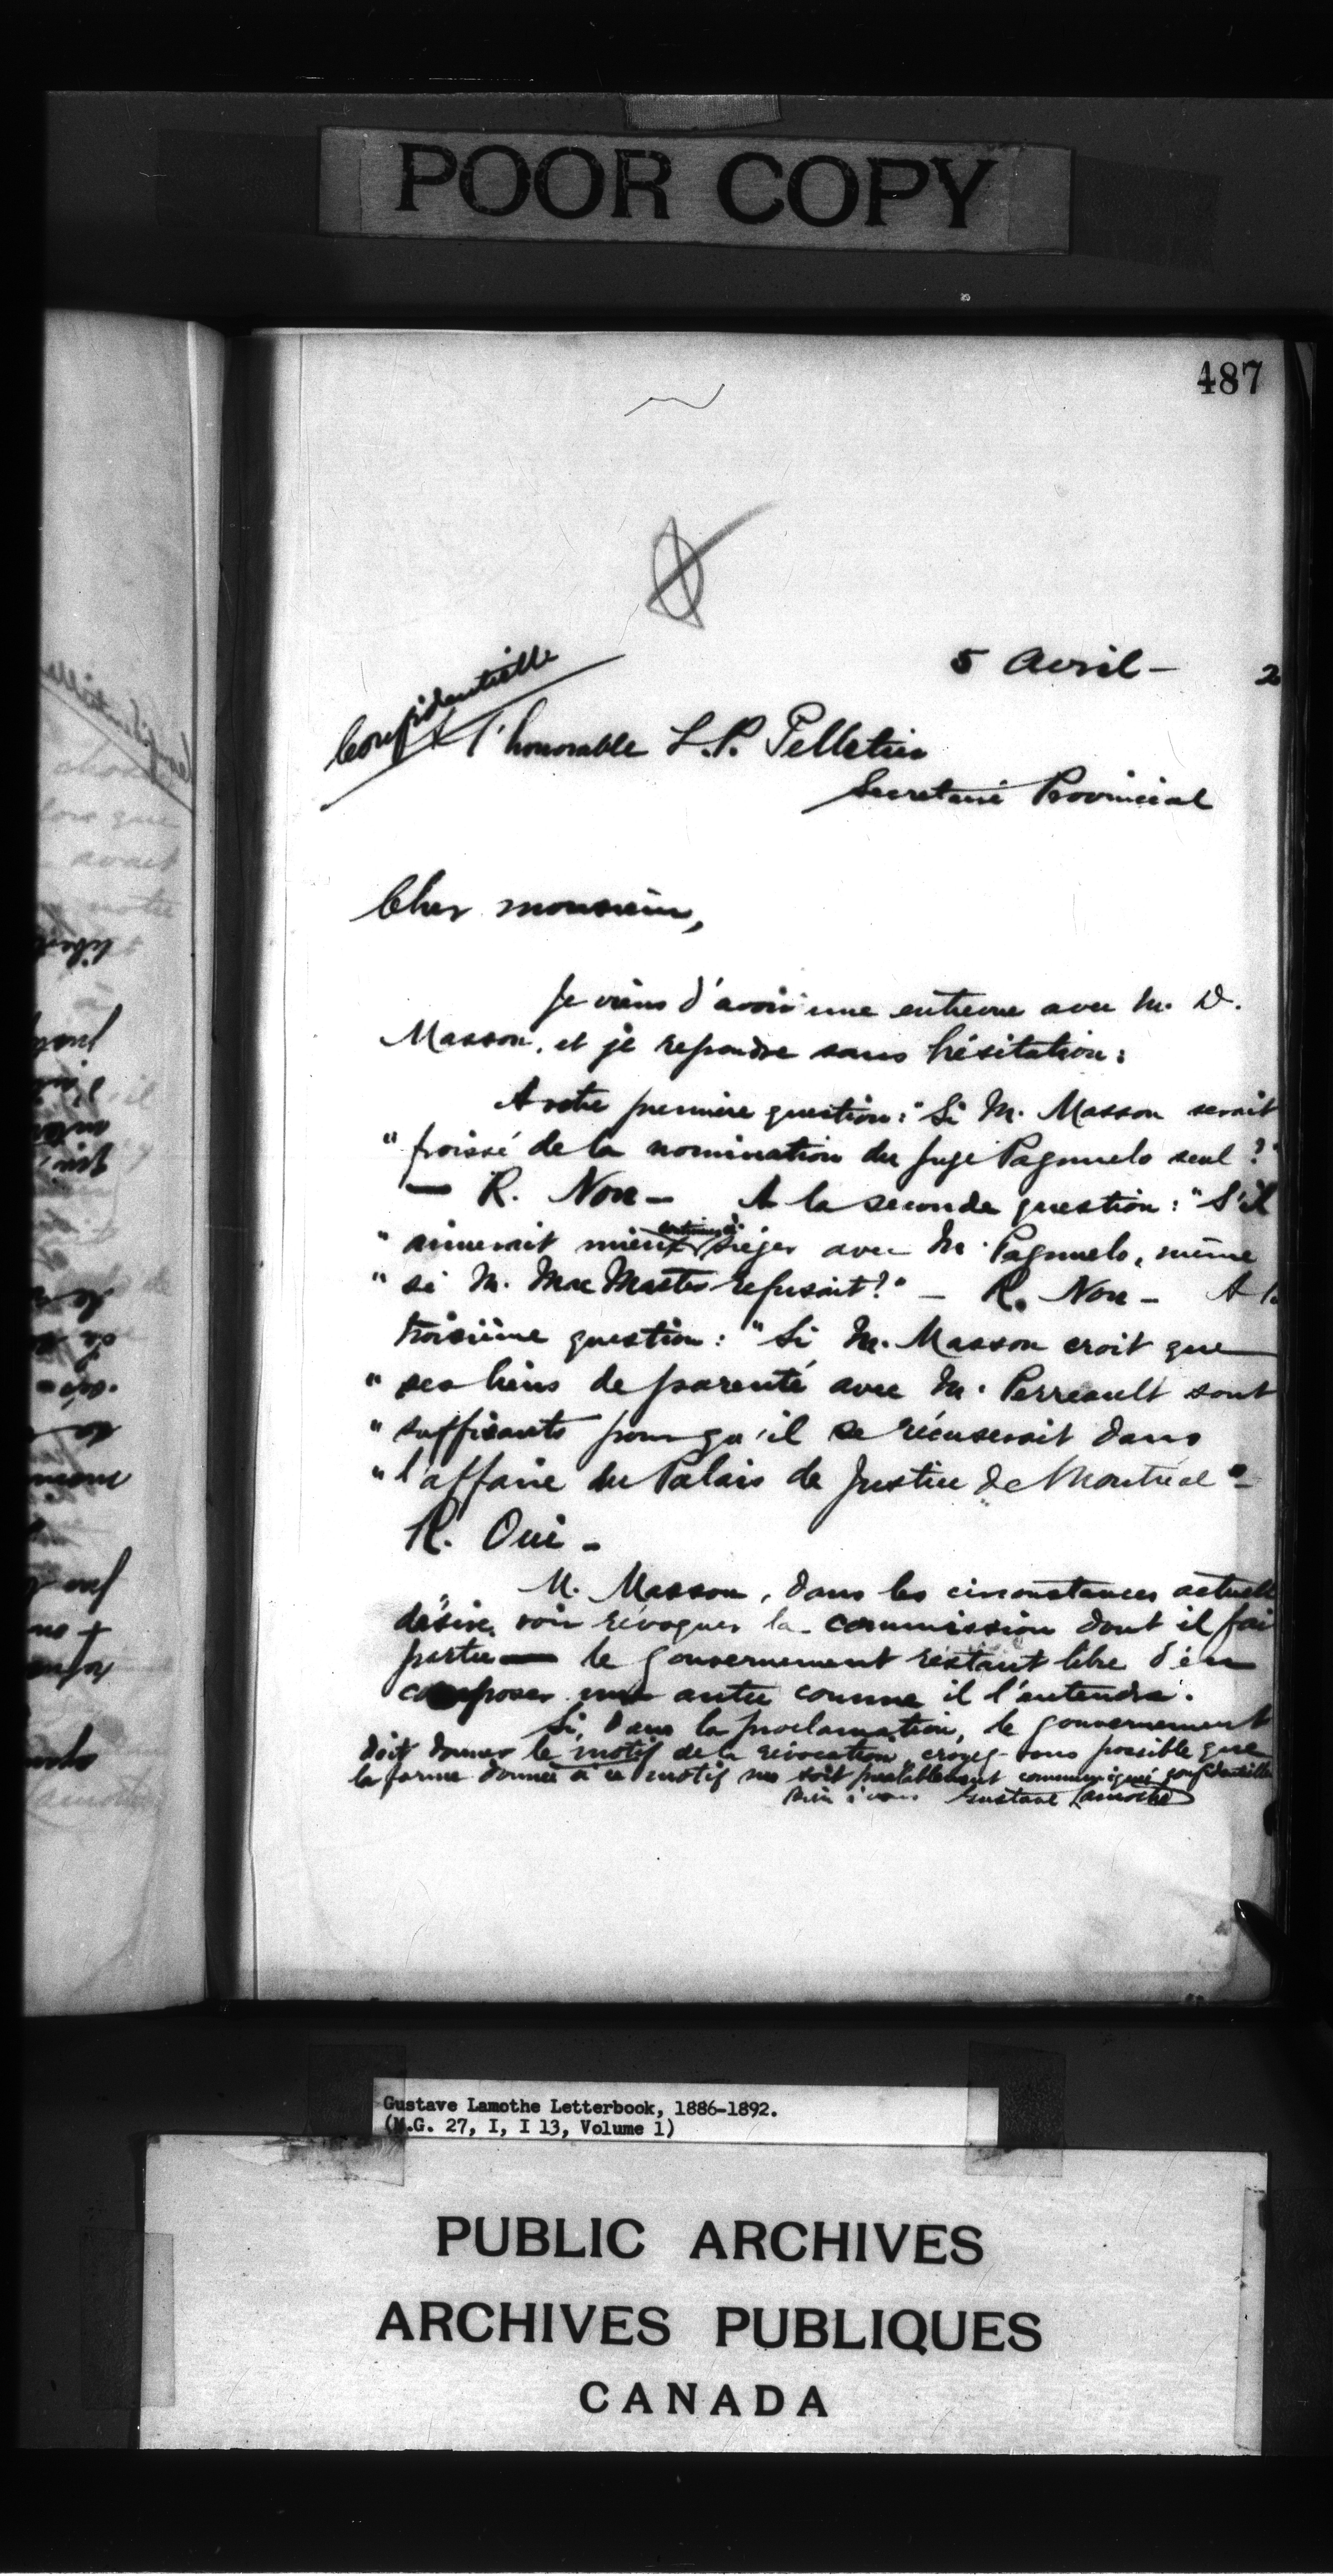 POOR COPY
487
5 Avril — 2
Confidentielle
A l'honorable L.P. Pelletier
Secretaire Provincial
Cher monsieur,
Je viens d'avoir une entrevue avec M. D.
Masson, et je reponds sans hésitation:
A votre première question: "Si M. Masson serait
" froissé de la nomination du juge Pagnuelo seul?"
— R. Non — A la seconde question: "S'il
" aimerait mieux continuer à siéger avec M. Pagnuelo, même
" si M. Mac Master refusait?" — R. Non — A la
troisième question: "Si M. Masson croit que
" ses liens de parenté avec M. Perreault sont
" suffisants pour qu'il se récuserait dans
" l'affaire du Palais de Justice de Montréal" —
R. Oui —
M. Masson, dans les circonstances actuell
désire voir révoquer la commission dont il fai
partie — le gouvernement restant libre d'en
composer une autre comme il l'entendra.
Si, dans la proclamation, le gouvernement
doit donner le motif de la révocation, croyez-vous possible que
la forme donnée à ce motif me soit préalablement communiqué confidentielle
Bien à vous Gustave Lamothe
Gustave Lamothe Letterbook, 1886-1892.
(M.G. 27, I, I 13, Volume 1)
PUBLIC ARCHIVES
ARCHIVES PUBLIQUES
CANADA